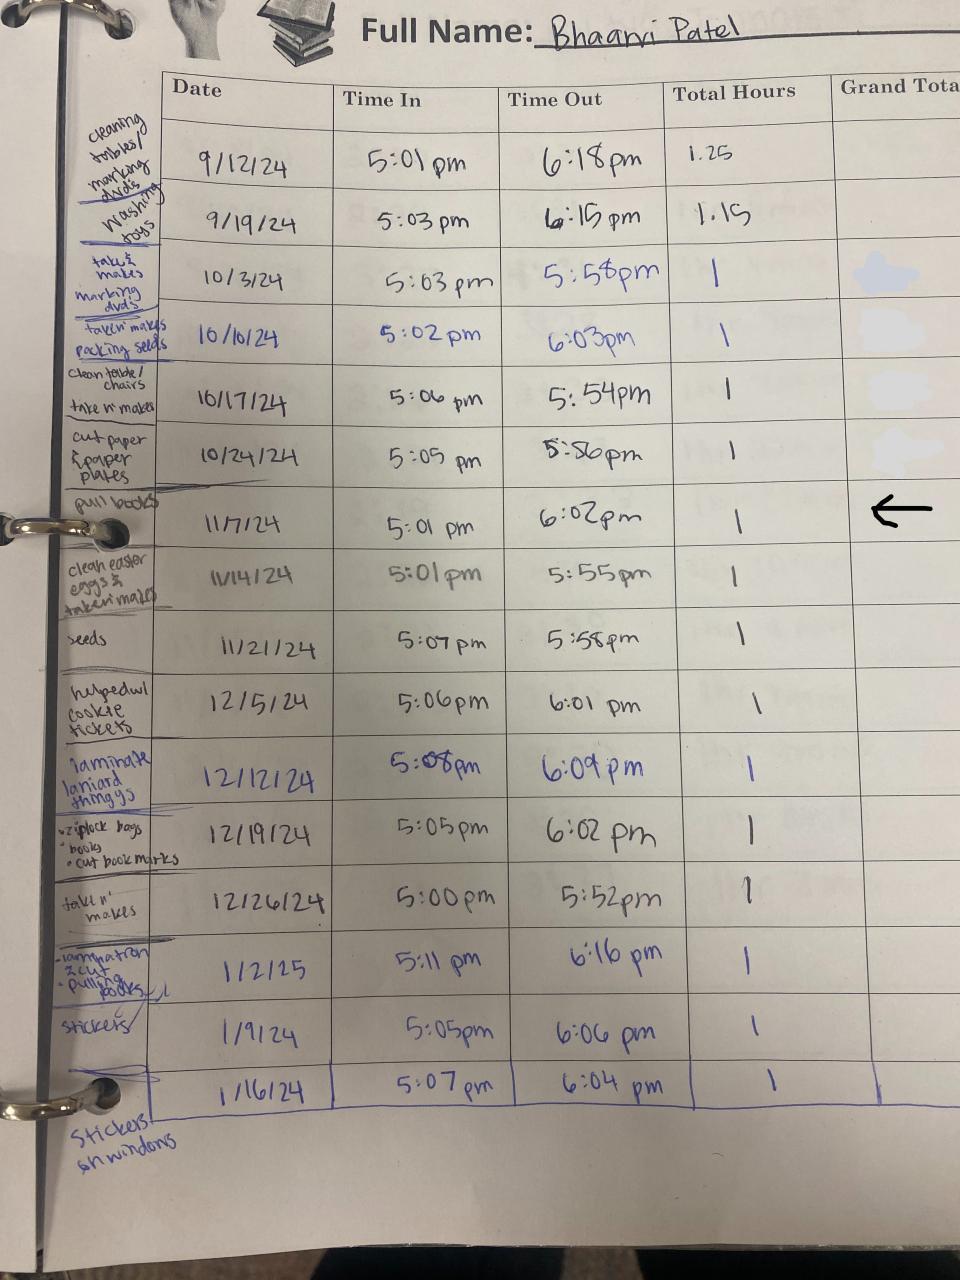 Full Name: Bhaanvi Patel
Date Time In Time Out Total Hours Grand Tota
cleaning
tables/
marking
dvd's
9/12/24 5:01 pm 6:18pm 1.25
washing
toys
9/19/24 5:03 pm 6:15 pm 1.15
take &
makes
marking
dvds
10/3/24 5:03 pm 5:58pm 1
take n' makes
packing seeds
10/10/24 5:02 pm 6:03pm 1
clean table/
chairs
take n' makes
10/17/24 5:06 pm 5:54pm 1
cut paper
& paper
plates
10/24/24 5:05 pm 5:56pm 1
pull books
11/7/24 5:01 pm 6:02pm 1 ←
clean easter
eggs &
take n' makes
11/14/24 5:01pm 5:55pm 1
seeds
11/21/24 5:07 pm 5:58pm 1
helped w/
cookie
tickets
12/5/24 5:06pm 6:01 pm 1
laminate
laniard
thingys
12/12/24 5:08pm 6:09 pm 1
• ziplock bags
• books
• cut bookmarks
12/19/24 5:05pm 6:02 pm 1
take n'
makes
12/26/24 5:00pm 5:52pm 1
& cut
• pulling
books
1/2/25 5:11 pm 6:16 pm 1
stickers
1/9/24 5:05pm 6:06 pm 1
1/16/24 5:07 pm 6:04 pm 1
stickers
on windows